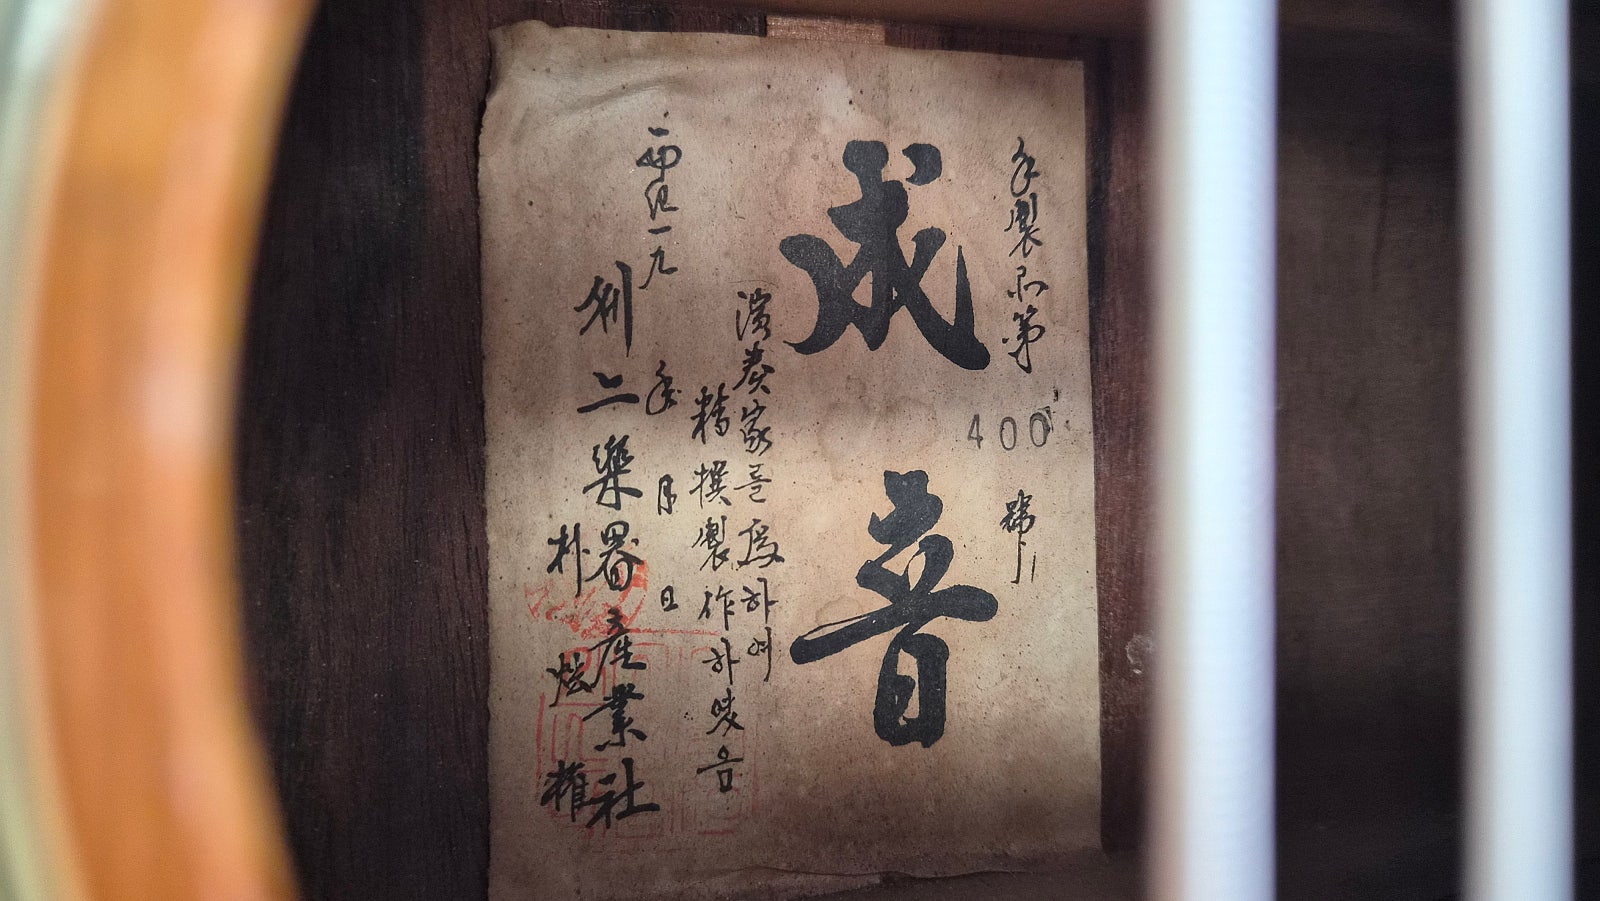 手製品第 400 號
成音
演奏家를 爲하여
精撰製作하였음
西紀一九 年 月 日
二樂器産業社
朴